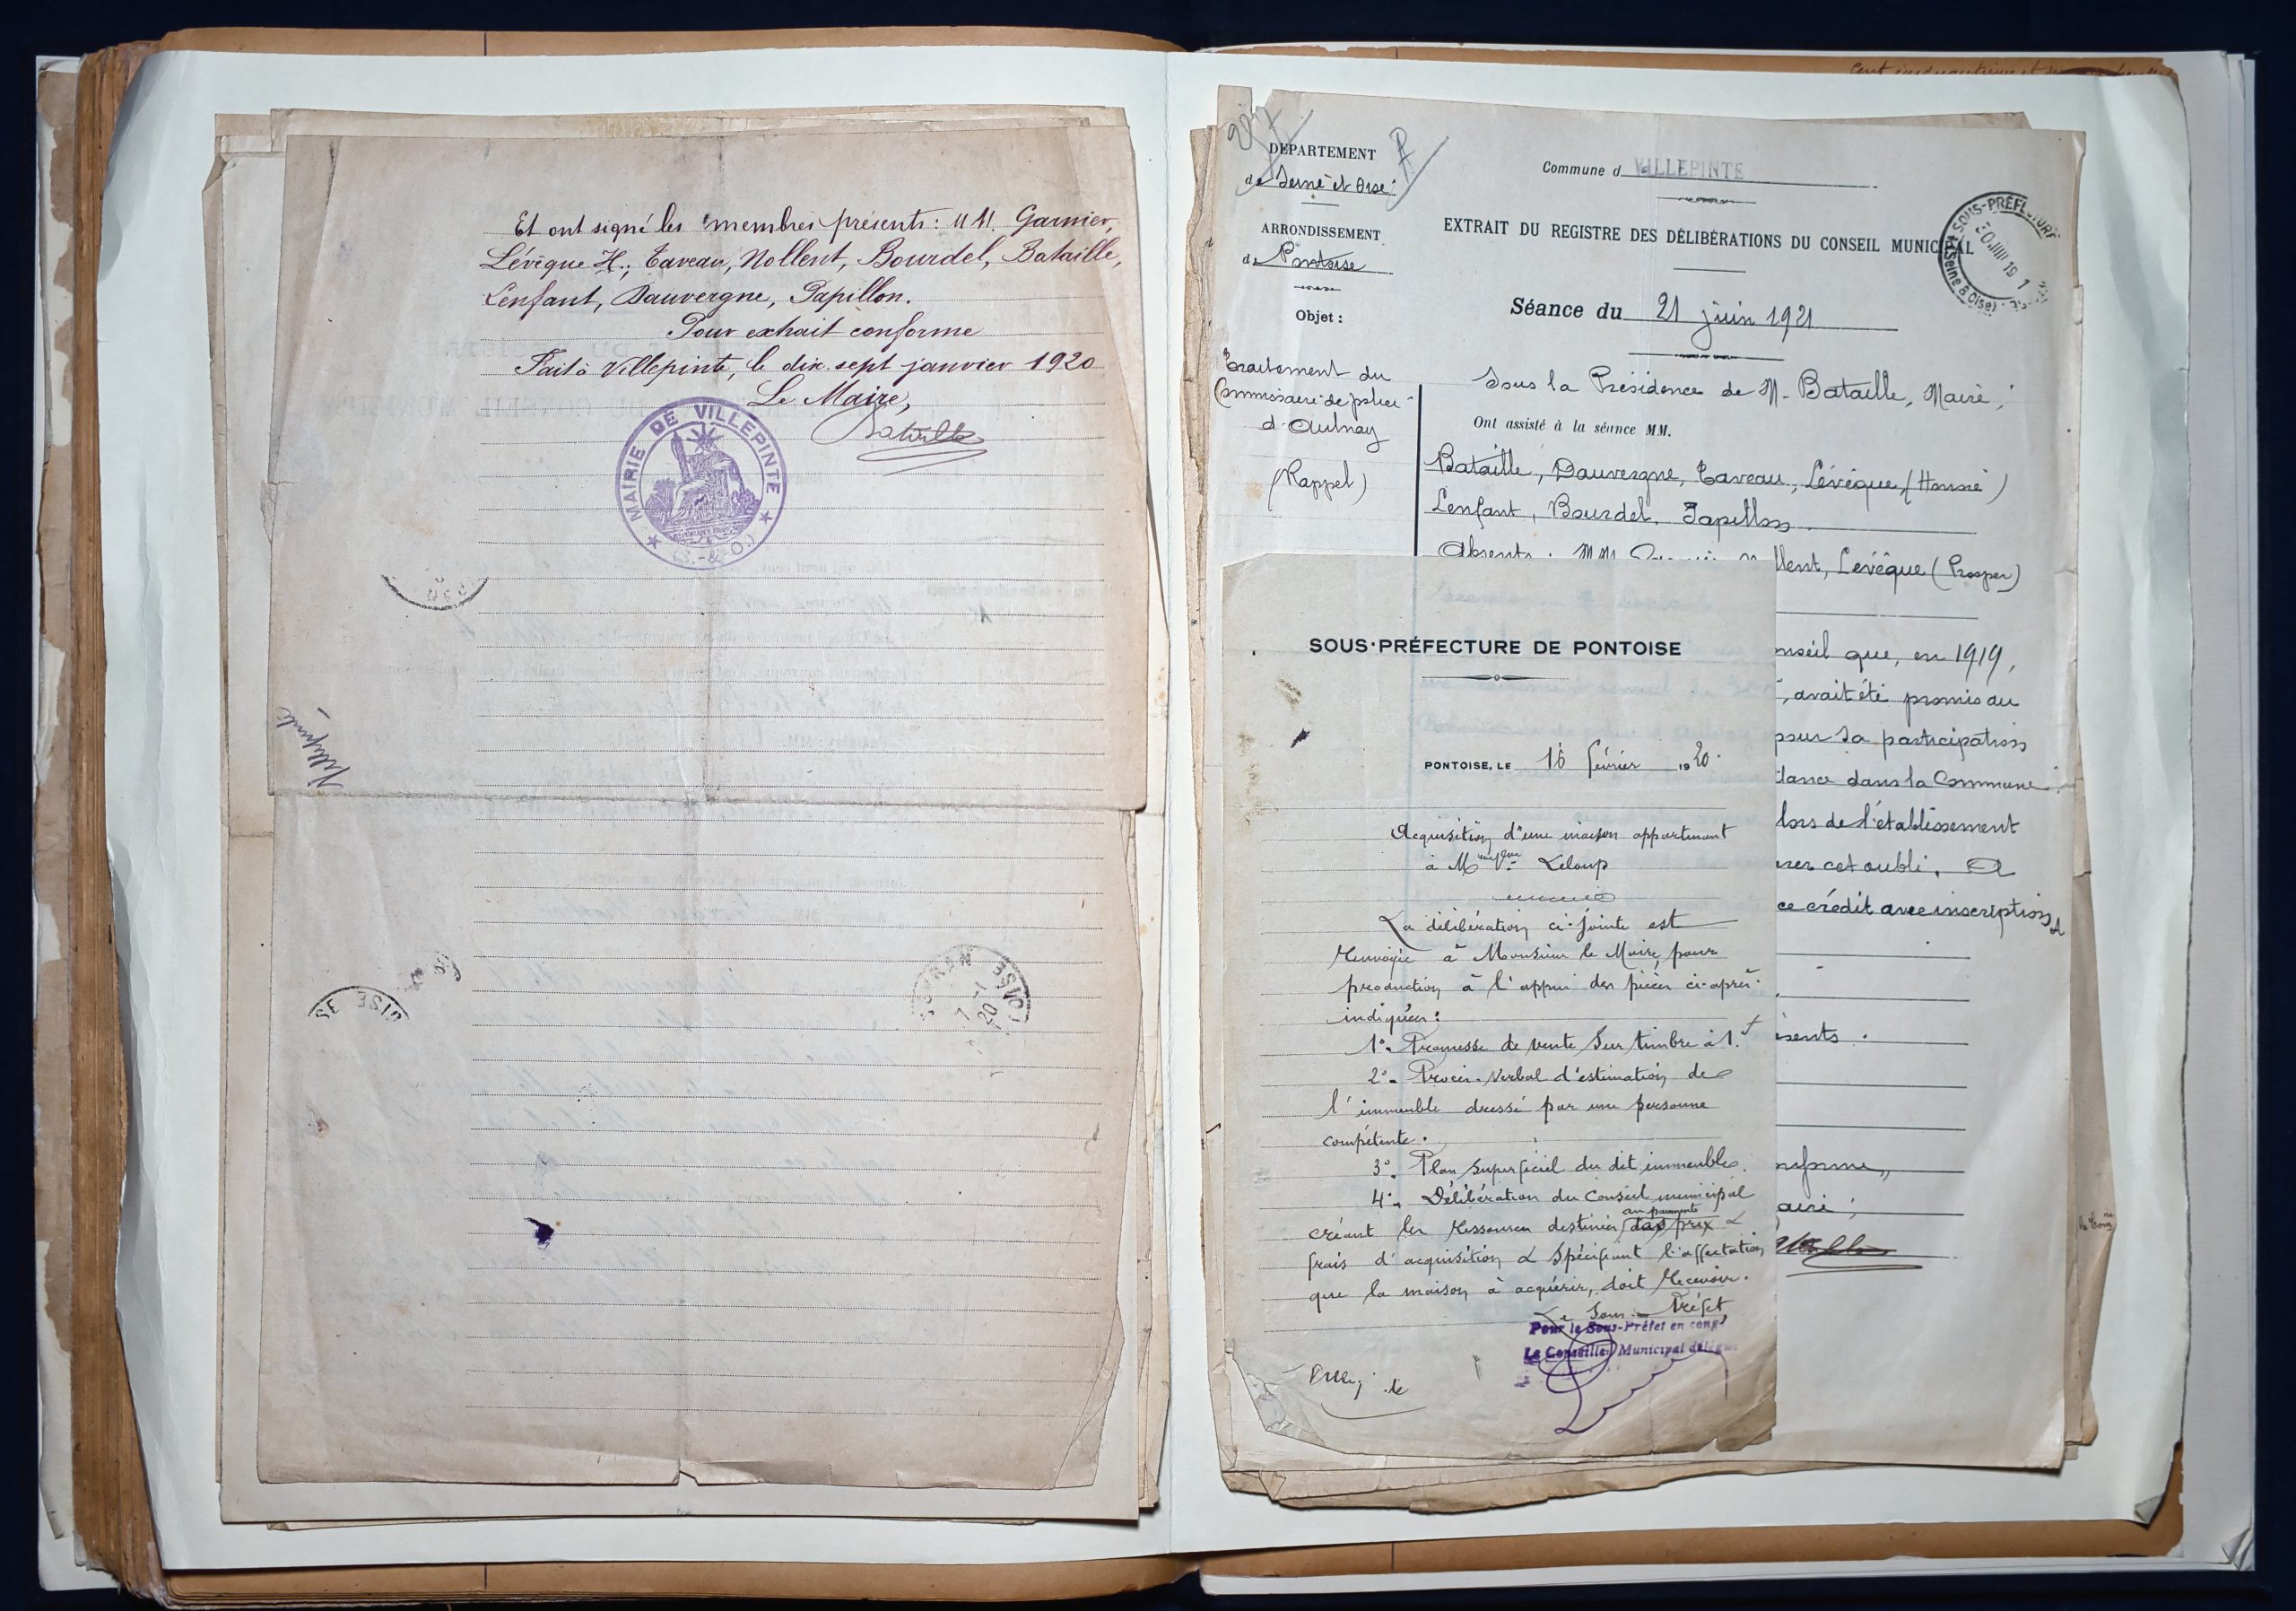 Et ont signé les membres présents: MM. Garnier,
Lévêque H., Taveau, Nollent, Bourdel, Bataille,
Lenfant, Dauvergne, Papillon.
Pour extrait conforme
Fait à Villepinte, le dix-sept janvier 1920
Le Maire,
Bataille
MAIRIE DE VILLEPINTE
(S.-&-O.)
Villepinte
OISE
SEVRAN
7 -1
20
DÉPARTEMENT
de Seine et Oise
ARRONDISSEMENT
de Pontoise
Objet :
Traitement du
Commissaire de police
d'Aulnay
(Rappel)
Commune d VILLEPINTE
EXTRAIT DU REGISTRE DES DÉLIBÉRATIONS DU CONSEIL MUNICIPAL
SOUS-PRÉFECTURE
(Seine & Oise)
Séance du 21 juin 1921
Sous la Présidence de M. Bataille, Maire,
Ont assisté à la séance MM.
Bataille, Dauvergne, Taveau, Lévêque (Honoré)
Lenfant, Bourdel, Papillon.
Absents : MM llent, Levêque (Prosper)
nseil que, en 1919,
, avait été promis au
pour sa participation
lance dans la Commune.
lors de l'établissement
rer cet oubli. A
ce crédit avec inscription
ésents.
nforme,
aire,
SOUS-PRÉFECTURE DE PONTOISE
PONTOISE, LE 16 février 1920.
Acquisition d'une maison appartenant
à M Leloup
La délibération ci-jointe est
renvoyée à Monsieur le Maire, pour
production à l'appui des pièces ci-après
indiquées :
1°- Promesse de vente sur timbre à 1.f
2°- Procès-verbal d'estimation de
l'immeuble dressé par une personne
compétente.
3°- Plan superficiel du dit immeuble.
4°- Délibération du Conseil municipal
au paiement
créant les ressources destinées prix &
frais d'acquisition & spécifiant l'affectation
que la maison à acquérir, doit recevoir.
Le Sous-Préfet
Pour le Sous-Préfet en congé
Le Conseiller Municipal délégué